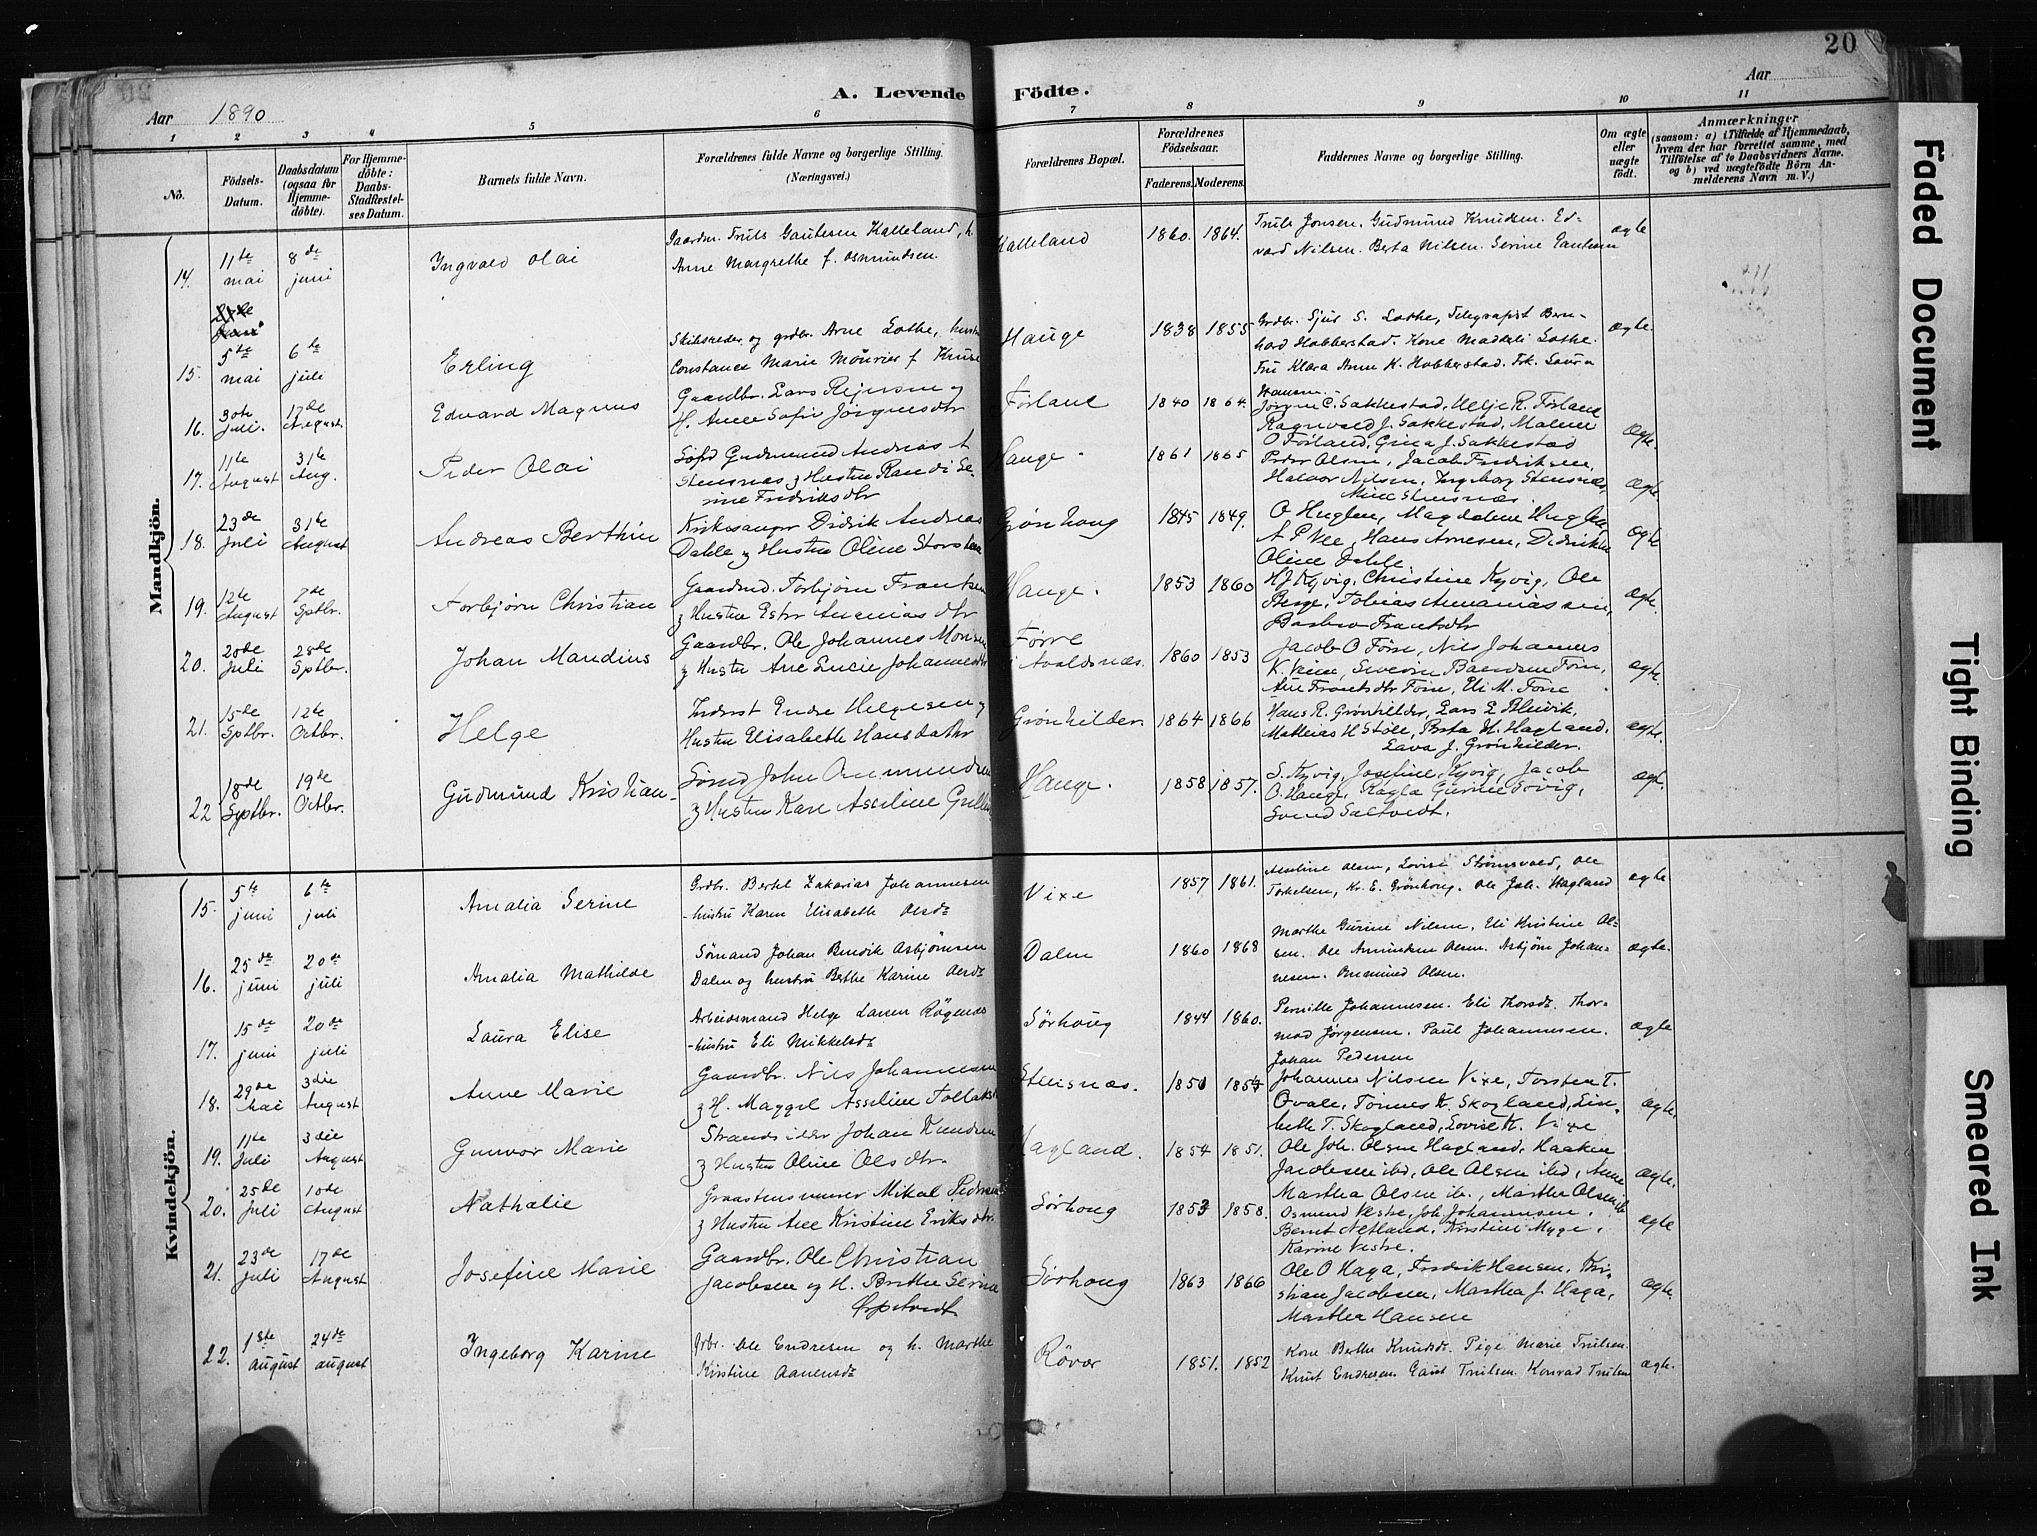 20
Aar 1890
A. Levende Födte.
Aar
1 2 3 4 5 6 7 8 9 10 11
No.
Födsels-Datum.
Daabsdatum (ogsaa for Hjemmedöbte).
For Hjemmedöbte: Daabs-Stadfæstelses Datum.
Barnets fulde Navn.
Forældrenes fulde Navne og borgerlige Stilling.
(Næringsvei.)
Forældrenes Bopæl.
Forældrenes Födselsaar.
Faderens. Moderens.
Faddernes Navne og borgerlige Stilling.
Om ægte eller uægte födt.
Anmærkninger
(saasom: a) i Tilfælde af Hjemmedaab, hvem der har forrettet samme, med Tilföielse af to Daabsvidners Navne, og b) ved uægtefödte Börn Anmelderens Navn m. V.)
Mandkjön.
14. 11te mai 8de juni Ingvald Olai Gaardm. Truls Gautesen Kalleland, h. Anne Margrethe f. Osmundsen. Kalleland 1860. 1864. Truls Jonsen. Gudmund Knudsen. Edvard Nilsen. Berta Nilsen. Serine Gautesen ægte
15. 5te mai 6te juli Erling Skibsreder og grdbr. Arne Lothe, hustru Constance Marie Mourier f. Kruse Hauge 1838 1855 Grdbr. Sjur S. Lothe, Telegrafist Bernhard Hobberstad. Kone Lothe. Fru Klara Anne K. Hobberstad. Frk. Laura Hansen. ægte.
16. 30te juli. 17de August. Edvard Magnus Gaardbr. Lars Rejersen og H. Anne Sofie Jørgensdtr Førland 1840 1864. Jørgen C. Sakkestad, Helje R. Førland Ragnvald J. Sakkestad, Malene O Førland, Gina J. Sakkestad ægte.
17. 11te August 31te Aug. Peder Olai Gudmund Andreas A Stensnæs og Hustru Randi Serine Fredriksdtr Hauge. 1861 1865 Peder Olsen, Jacob Fredriksen, Halvor Nilsen, Ingeborg Stensnæs, Stensnæs. ægte.
18. 23de Juli 31te August Andreas Berthin Kirkesanger Didrik Andreas Dahle og Hustru Oline Grønhoug 1845 1849. O Huglen, Magdalene Huglen A P Vee, Hans Arnesen, Didrikke Oline Dahle. ægte
19. 12te August 7de Sptbr. Torbjørn Christian Gaardmd. Torbjørn Frantsen og Hustru Ester Ananiasdtr Hauge. 1853 1860 H J Kyvig, Christine Kyvig, Ole Berge, Tobias Annaniassen, Barbro Frantsdtr ægte.
20. 20de Juli 28de Sptbr. Johan Mandius Gaardbr. Ole Johannes Monsen og Hustru Ane Lucie Johannesdtr Førre i Avaldsnæs. 1860 1853 Jacob O Førre, Nils Johannes K. Førre, Ane Frantsdtr Førre, Eli M. Førre ægte.
21. 15de Sptbr. 12te Octbr. Helge Inderst Endre Helgesen og Hustru Elisabeth Hansdatter Grønhilder. 1864 1866 Hans R. Grønhilder, Lars L Mathias H Støle, Berta H. Hagland. Lava J. Grønhilder. ægte.
22 18de Septbr. 19de Octbr. Gudmund Kristian John Onmundsen og Hustru Karen Asseline Hauge. 1858 1857. S. Kyvig, Josefine Kyvig, Jacob O. Hauge, Svend Saltvedt. ægt.
Kvindekjön.
15. 5te juni 6te juli Amalia Serine Grdbr. Bertel Zakarias Johannesen hustru Karen Elisabeth Olsdr Vixe 1857 1861. Asseline Olsen, Lovise Strømsvold, Ole Torkelsen, Kr. E. Grønhoug. Ole Joh. Hagland ægte.
16. 25de juni 20de juli Amalia Mathilde Sömand Johan Bendik Asbjörnsen Dalen og hustru Berthe Karine Olsdr Dalen 1860 1868 Marthe Gurine Nilsen. Eli Kristine Olsen. Ole Olsen. Asbjörn Johannesen. Onemund Olsen. ægte.
17. 15de juni 20de juli Laura Elise Arbeidsmand Helge Larsen Rögenes hustru Eli Mikkelsdr Sörhoug 1844 1860. Pernille Johannesen. Eli Thorsdr. Thormod Jørgensen. Paul Johannesen. Johan Pedersen ægte
18. 29de Mai 3die August Anne Marie Gaardbr. Nils Johannesen og H. Maggel Asseline Tollaksdtr Stensnæs. Johannes Nilsen Vixe, Torsten T. Ovale, Tønnes K. Skogland, Lisbeth T. Skogland, Lovise K. Vixe ægte.
19. 11te Juli 3die August Gunvor Marie Strandsidder Johan Knudsen og Hustru Oline Olsdtr. Hagland. 1854 1851. Ole Joh. Olsen Hagland, Haaken Jacobsen ibd, Ole Olsen ibd, Anne Martha Olsen ib., Martha Olsen ib ægte.
20. 25de Juli 10de August Nathalie Graastensmurer Mikal Pedersen og Hustru Ane Kristine Eriksdtr. Sørhoug 1858. Osmund Vestre, Joh Johannesen. Bernt Netland, Kristine Myge, Karine Vestre. ægte
21. 23de juli 17de August Josefine Marie Gaardbr. Ole Christian Jacobsen og H. Berthe Serine Sørhoug 1863 1866 Ole O Haga, Fredrik Hansen, Kristian Jacobsen, Martha J. Haga, Martha Hansen ægte.
22. 18te august 24de august Ingeborg Karine Grbr. Ole Endresen og h. Marthe Kristine Aanensdr Rövær 1851. 1852 Kone Berthe Knudsdr. Pige Marie Trulsen. Knut Endresen. Gaut Trulsen. Konrad Trulsen ægte.
Faded Document
Tight Binding
Smeared Ink